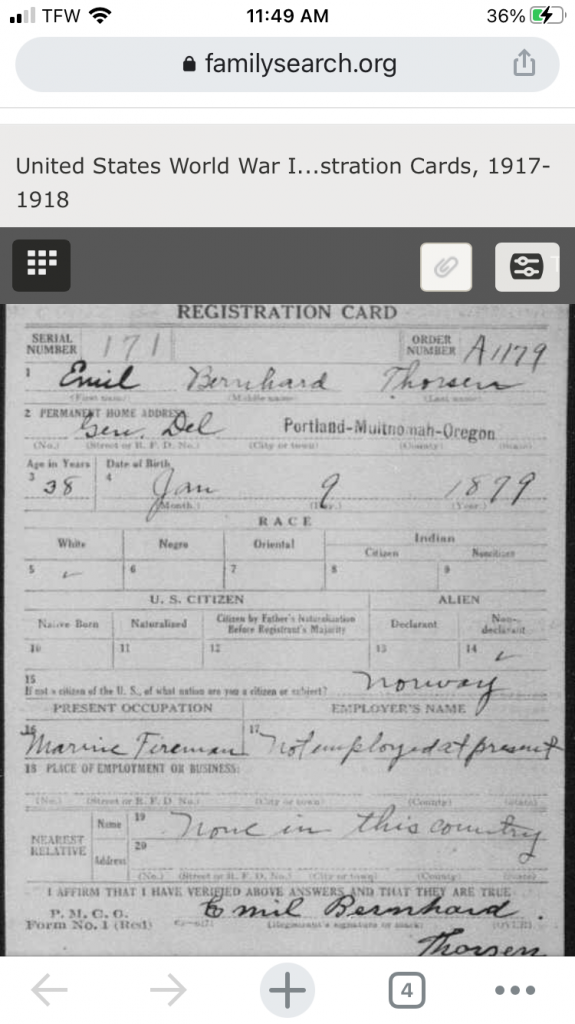 TFW 11:49 AM 36%
familysearch.org
United States World War I...stration Cards, 1917-
1918
REGISTRATION CARD
SERIAL NUMBER 171 ORDER NUMBER A1179
1 Emil Bernhard Thorsen
(First name) (Middle name) (Last name)
2 PERMANENT HOME ADDRESS:
Gen. Del Portland-Multnomah-Oregon
(No.) (Street or R. F. D. No.) (City or town) (County) (State)
Age in Years Date of Birth
3 38 4 Jan 9 1879
(Month.) (Day.) (Year.)
RACE
White Negro Oriental Indian
Citizen Noncitizen
5 ✓ 6 7 8 9
U. S. CITIZEN ALIEN
Native Born Naturalized Citizen by Father's Naturalization Before Registrant's Majority Declarant Non-declarant
10 11 12 13 14 ✓
15
If not a citizen of the U. S., of what nation are you a citizen or subject? Norway
PRESENT OCCUPATION EMPLOYER'S NAME
16 Marine Fireman 17 Not employed at present
18 PLACE OF EMPLOYMENT OR BUSINESS:
(No.) (Street or R. F. D. No.) (City or town) (County) (State)
NEAREST RELATIVE Name 19 None in this country
Address 20
(No.) (Street or R. F. D. No.) (City or town) (County) (State)
I AFFIRM THAT I HAVE VERIFIED ABOVE ANSWERS AND THAT THEY ARE TRUE
P. M. G. O.
Form No. 1 (Red) Emil Bernhard
(Registrant's signature or mark) (OVER)
Thorsen
4